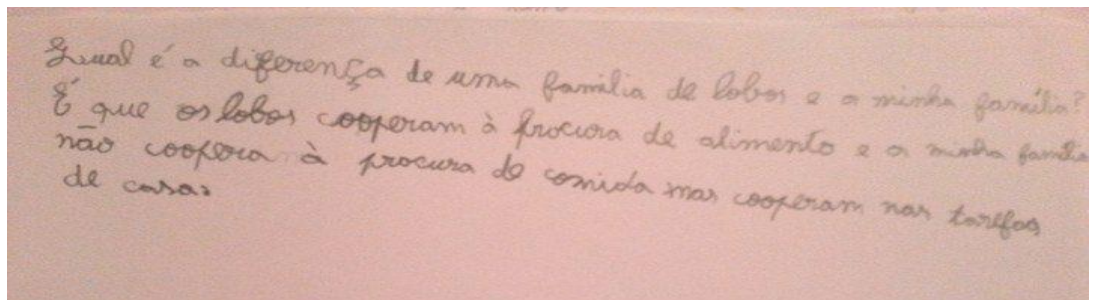 Qual é a diferença de uma família de lobos e a minha família?
É que os lobos cooperam à procura de alimento e a minha família
não coopera à procura de comida mas cooperam nas tarefas
de casa.